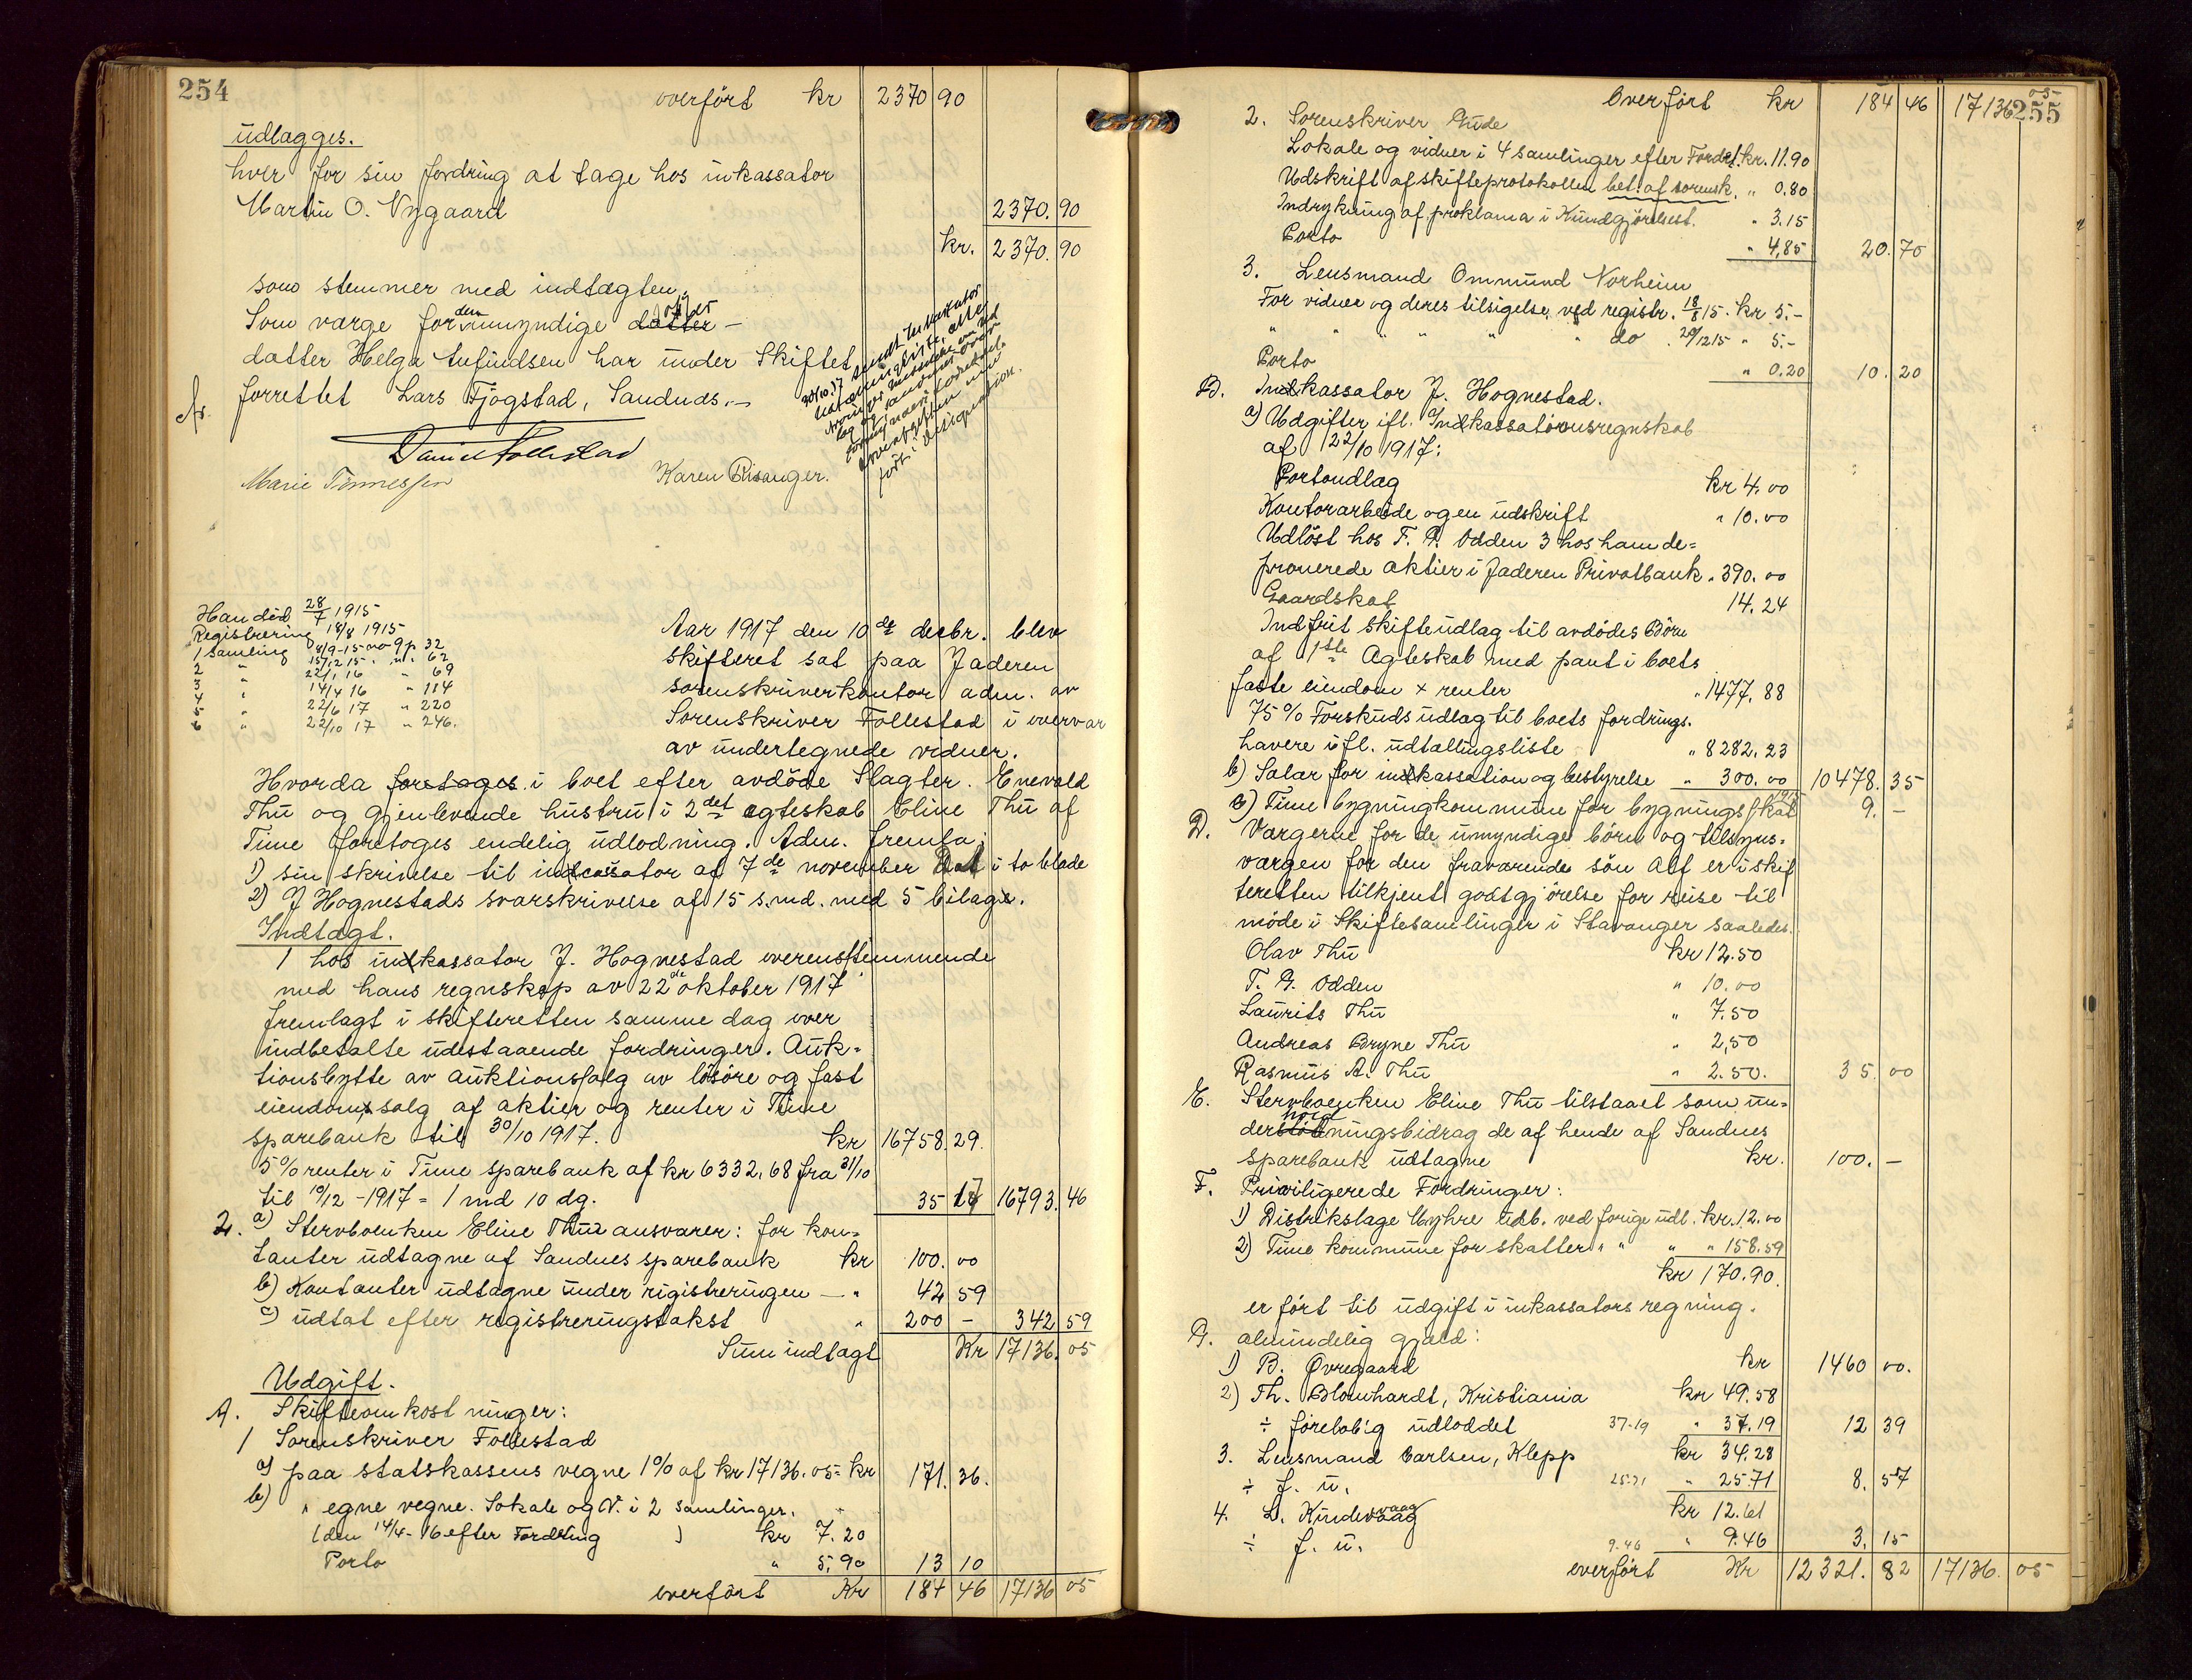 254
overført kr 2370 90
udlægges.
hver for sin fordring at tage hos inkassator
Martin O. Nygaard 2370. 90
kr. 2370. 90
som stemmer med indtægten.
Som værge for den umyndige datter
datter Helga Enfindsen har under Skiftet
forrettet Lars Fjøgstad, Sandnes.-
Daniel Follestad
Marie Tønnessen Karen Risanger.
Han død 28/7 1915
Registrering 18/8 1915
1 samling 8/9-15 no 9 p 32
2 " 15/12 15 " 62
3 " 22/1 16 " 69
4 " 14/4 16 " 114
5 " 22/6 17 " 220
6 " 22/10 17 " 246.
Aar 1917 den 10de decbr. blev
skifteret sat paa Jæderen
sorenskriverkontor adm. av
Sorenskriver Follestad i overvær
av undertegnede vidner.
Hvorda foretoges i boet efter avdøde Slagter. Enevald
Thu og gjenlevende hustru i 2det egteskab Eline Thu af
Time foretoges endelig udlodning. Adm. fremla:
1) sin skrivelse til indcassator af 7de november i to blade
2) J Hognestads svarskrivelse af 15 s.md. med 5 bilage.
Indtægt.
1 hos indkassator J. Hognestad overensstemmende
med hans regnskap av 22de oktober 1917
fremlagt i skifteretten samme dag over
indbetalte udestaaende fordringer. Auk-
tionsbytte av auktionssalg av løsøre og fast
eiendom, salg af aktier og renter i Time
sparebank til 30/10 1917. kr 16758. 29.
5% renter i Time sparebank af kr 6332,68 fra 31/10
til 10/12 -1917 = 1 md 10 dg. 35 17 16793. 46
2. a) Stervboenken Eline Thu ansvarer: for kon-
tanter udtagne af Sandnes sparebank kr 100. 00
b) Kontanter udtagne under rigistreringen - " 42 59
c) udtat efter registreringstakst " 200 - 342 59
Sum indtægt Kr 17136. 05
Udgift.
A. Skifteomkostninger:
1 Sorenskriver Follestad
a) paa statskassens vegne 1% af kr 17136.05 = kr 171. 36.
b) " egne vegne. Lokale og V. i 2 samlinger.
(den 14/4-16 efter Fordeling ) kr 7.20
Porto " 5.90 13 10
overført Kr 184 46 17136 05
255
Overført kr 184 46 17136 05
2. Sorenskriver Gude
Lokale og vidner i 4 samlinger efter Fordel. kr. 11.90
Udskrift af skifteprotokollen bet. af sorensk. " 0.80
Indrykning af proklama i Kundgjørelsest. " 3.15
Porto " 4.85 20. 70
3. Lensmand Ommund Norheim
For vidner og deres tilsigelse ved registr. 18/8 15. kr 5.-
" " " " " do . 20/12 15 " 5.-
Porto " 0.20 10. 20
B. Indkassator J. Hognestad.
a) Udgifter ifl. Indkassationsregnskab
af 22/10 1917:
Portoudlæg kr 4.00
Kontorarbeide og en udskrift " 10.00
Udløst hos T. G. Odden 3 hos ham de=
pronerede aktier i Jæderen Privatbank " 390.00
Gaardskat 14.24
Indfrit skifteudlæg til avdødes Børn
af 1ste Ægteskab med pant i boets
faste eiendom + renter " 1477,88
75% Forskudsudlæg til boets fordrings.
havere ifl. udtællingsliste " 8282,23
b) Salær for indkassation og bestyrelse " 300.00 10478. 35
c) Time bygningkommune for bygningsskat 1915 9. -
D. Værgerne for de umyndige børn og tilsyns-
værgen for den fraværende søn Alf er i skif
teretten tilkjent godtgjørelse for reise til
møde i Skiftesamlinger i Stavanger saaledes.
Olav Thu kr 12.50
T. G. Odden " 10.00
Laurits Thu " 7.50
Andreas Bryne Thu " 2,50
Rasmus A. Thu " 2.50. 35. 00
E. Stervboenken Eline Thu tilstaaet som un-
derholdningsbidrag de af hende af Sandnes
sparebank udtagne kr. 100. -
F. Priviligerede Fordringer:
1) Distrikslæge Myhre udb. ved forige udl. kr. 12.00
2) Time kommune for skatter " " " " 158.59
kr 170.90.
er ført til udgift i inkassators regning.
G. almindelig gjæld:
1) B. Øvregaard kr 1460 00.
2) Th. Blomhardt, Kristiania kr 49.58
÷ foreløbig udloddet 37.19 " 37.19 12 39
3. Lensmand Carlsen, Klepp kr 34.28
÷ f. u. 25.71 " 25.71 8. 57
4. D. Kindervaag kr 12.61
÷ f. u. 9.46 " 9.46 3. 15
overført Kr 12321. 82 17136. 05